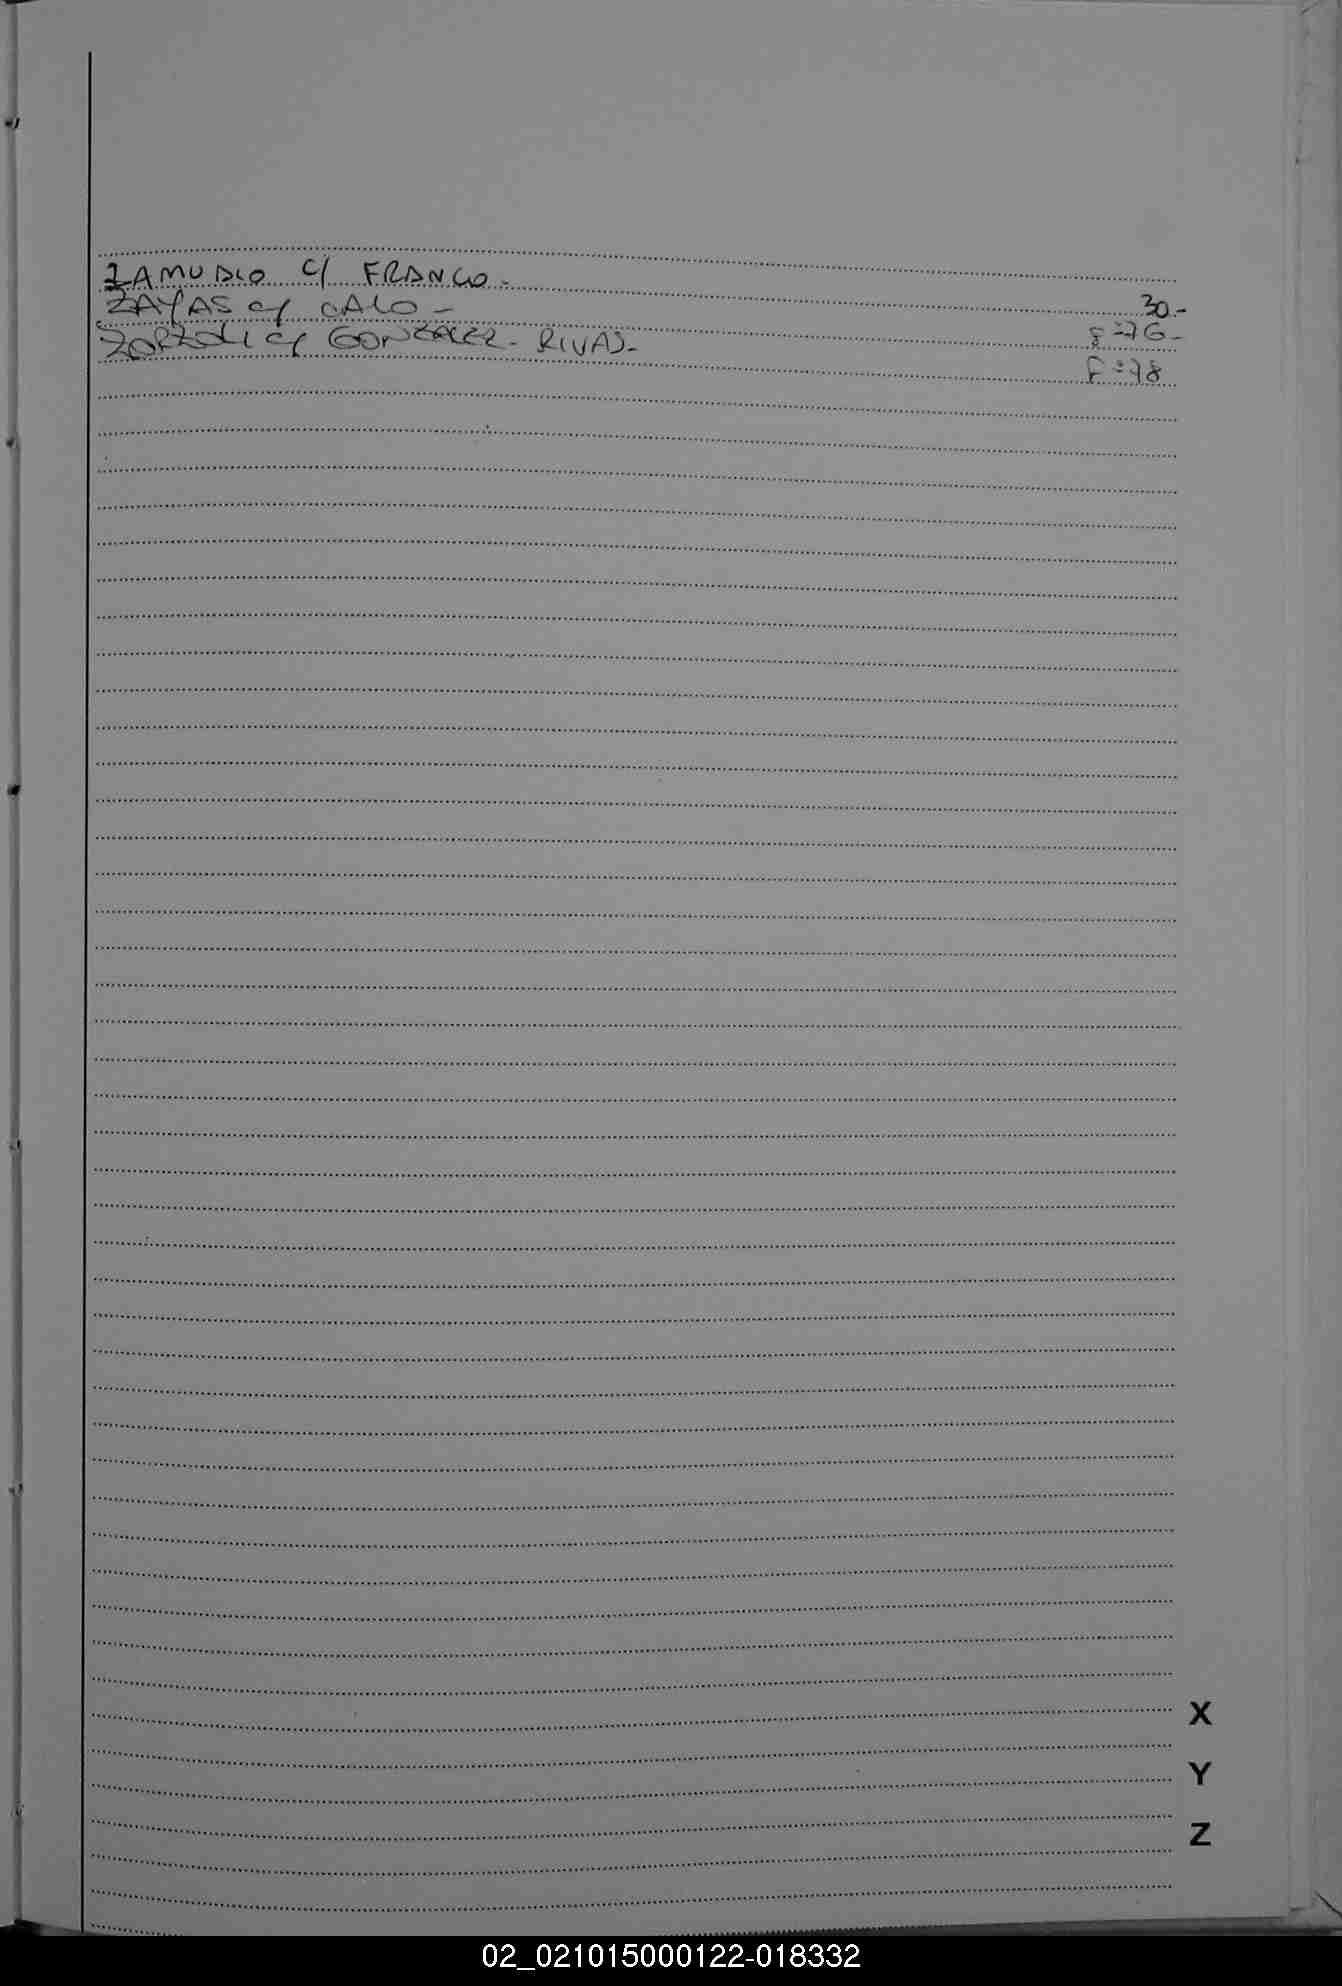 ZAMUDIO C/ FRANCO.- 30.-
ZAYAS C/ CALO - F=76-
ZORZOLI C/ GONZALEZ - RIVAS- F=78
X
Y
Z
02_021015000122-018332